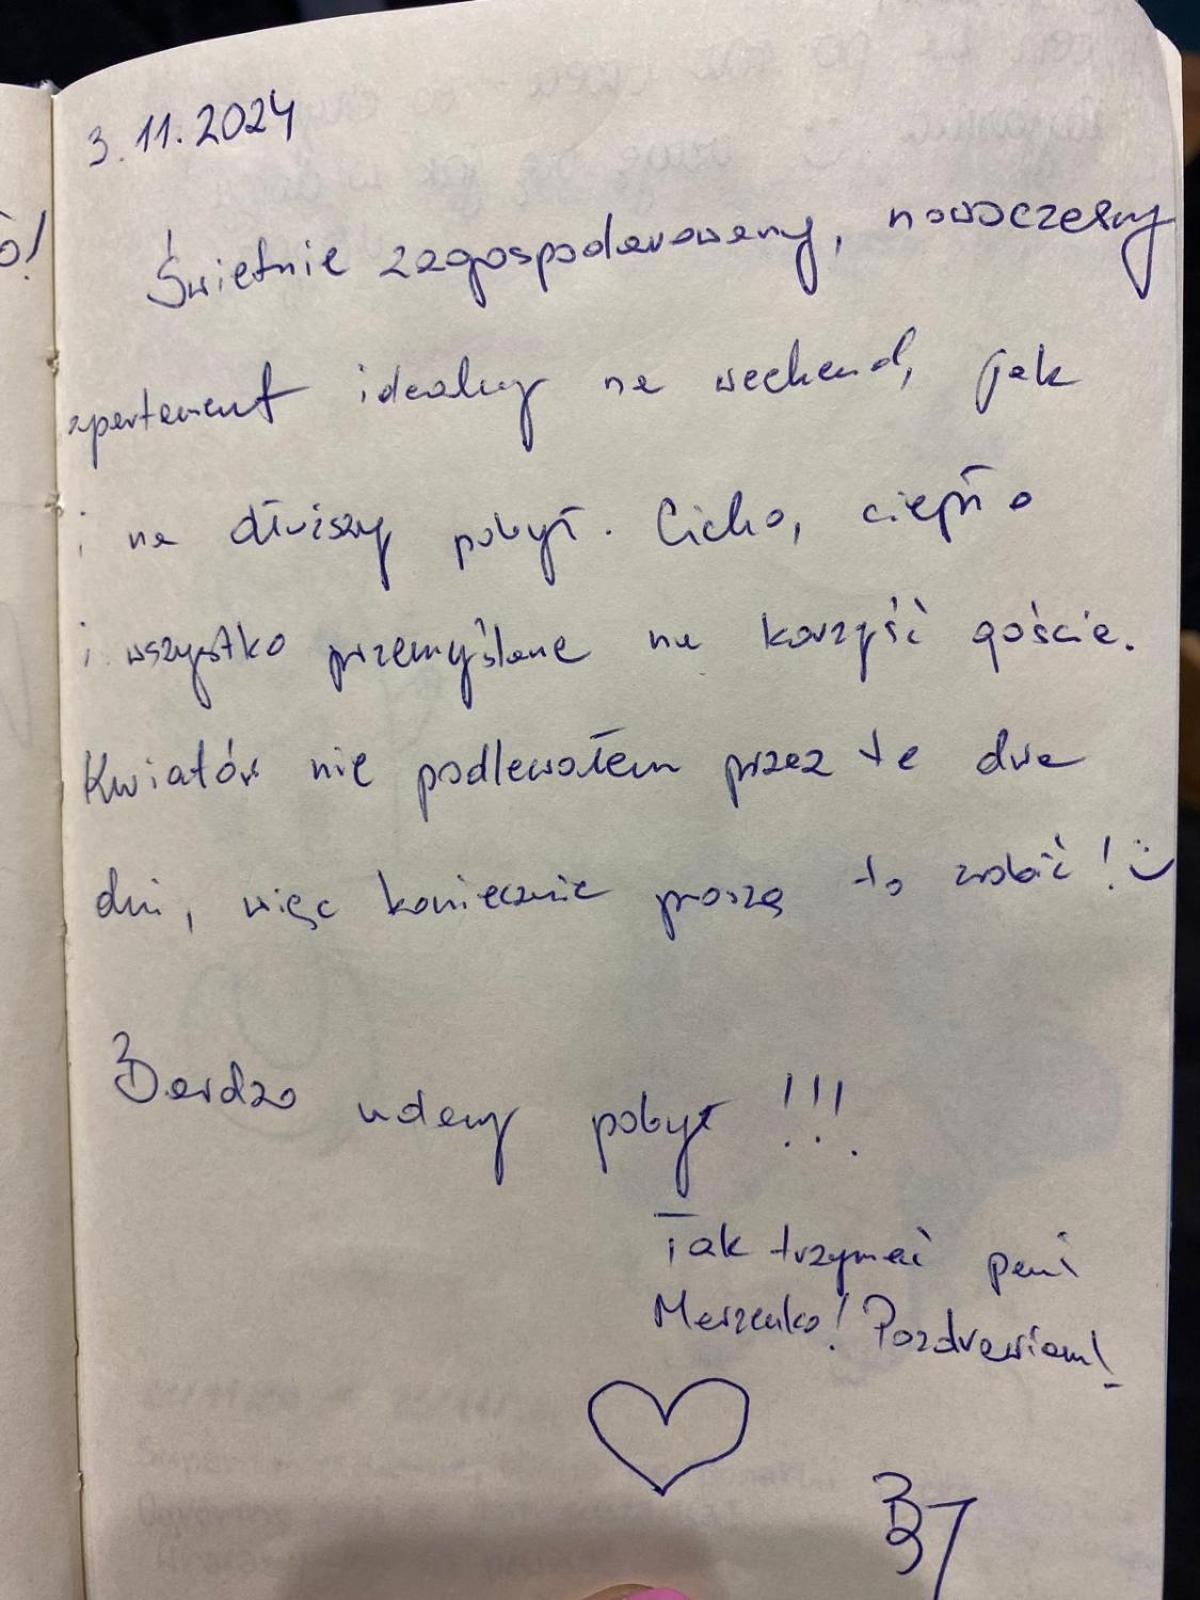 3.11.2024
Świetnie zagospodarowany, nowoczesny
apartament idealny na weekend, jak
i na dłuższy pobyt. Cicho, ciepło
i wszystko przemyślane na korzyść gościa.
Kwiatów nie podlewałem przez te dwa
dni, więc koniecznie proszę to zrobić! :)
Bardzo udany pobyt !!!
Tak trzymać pani
Marzenko! Pozdrawiam!